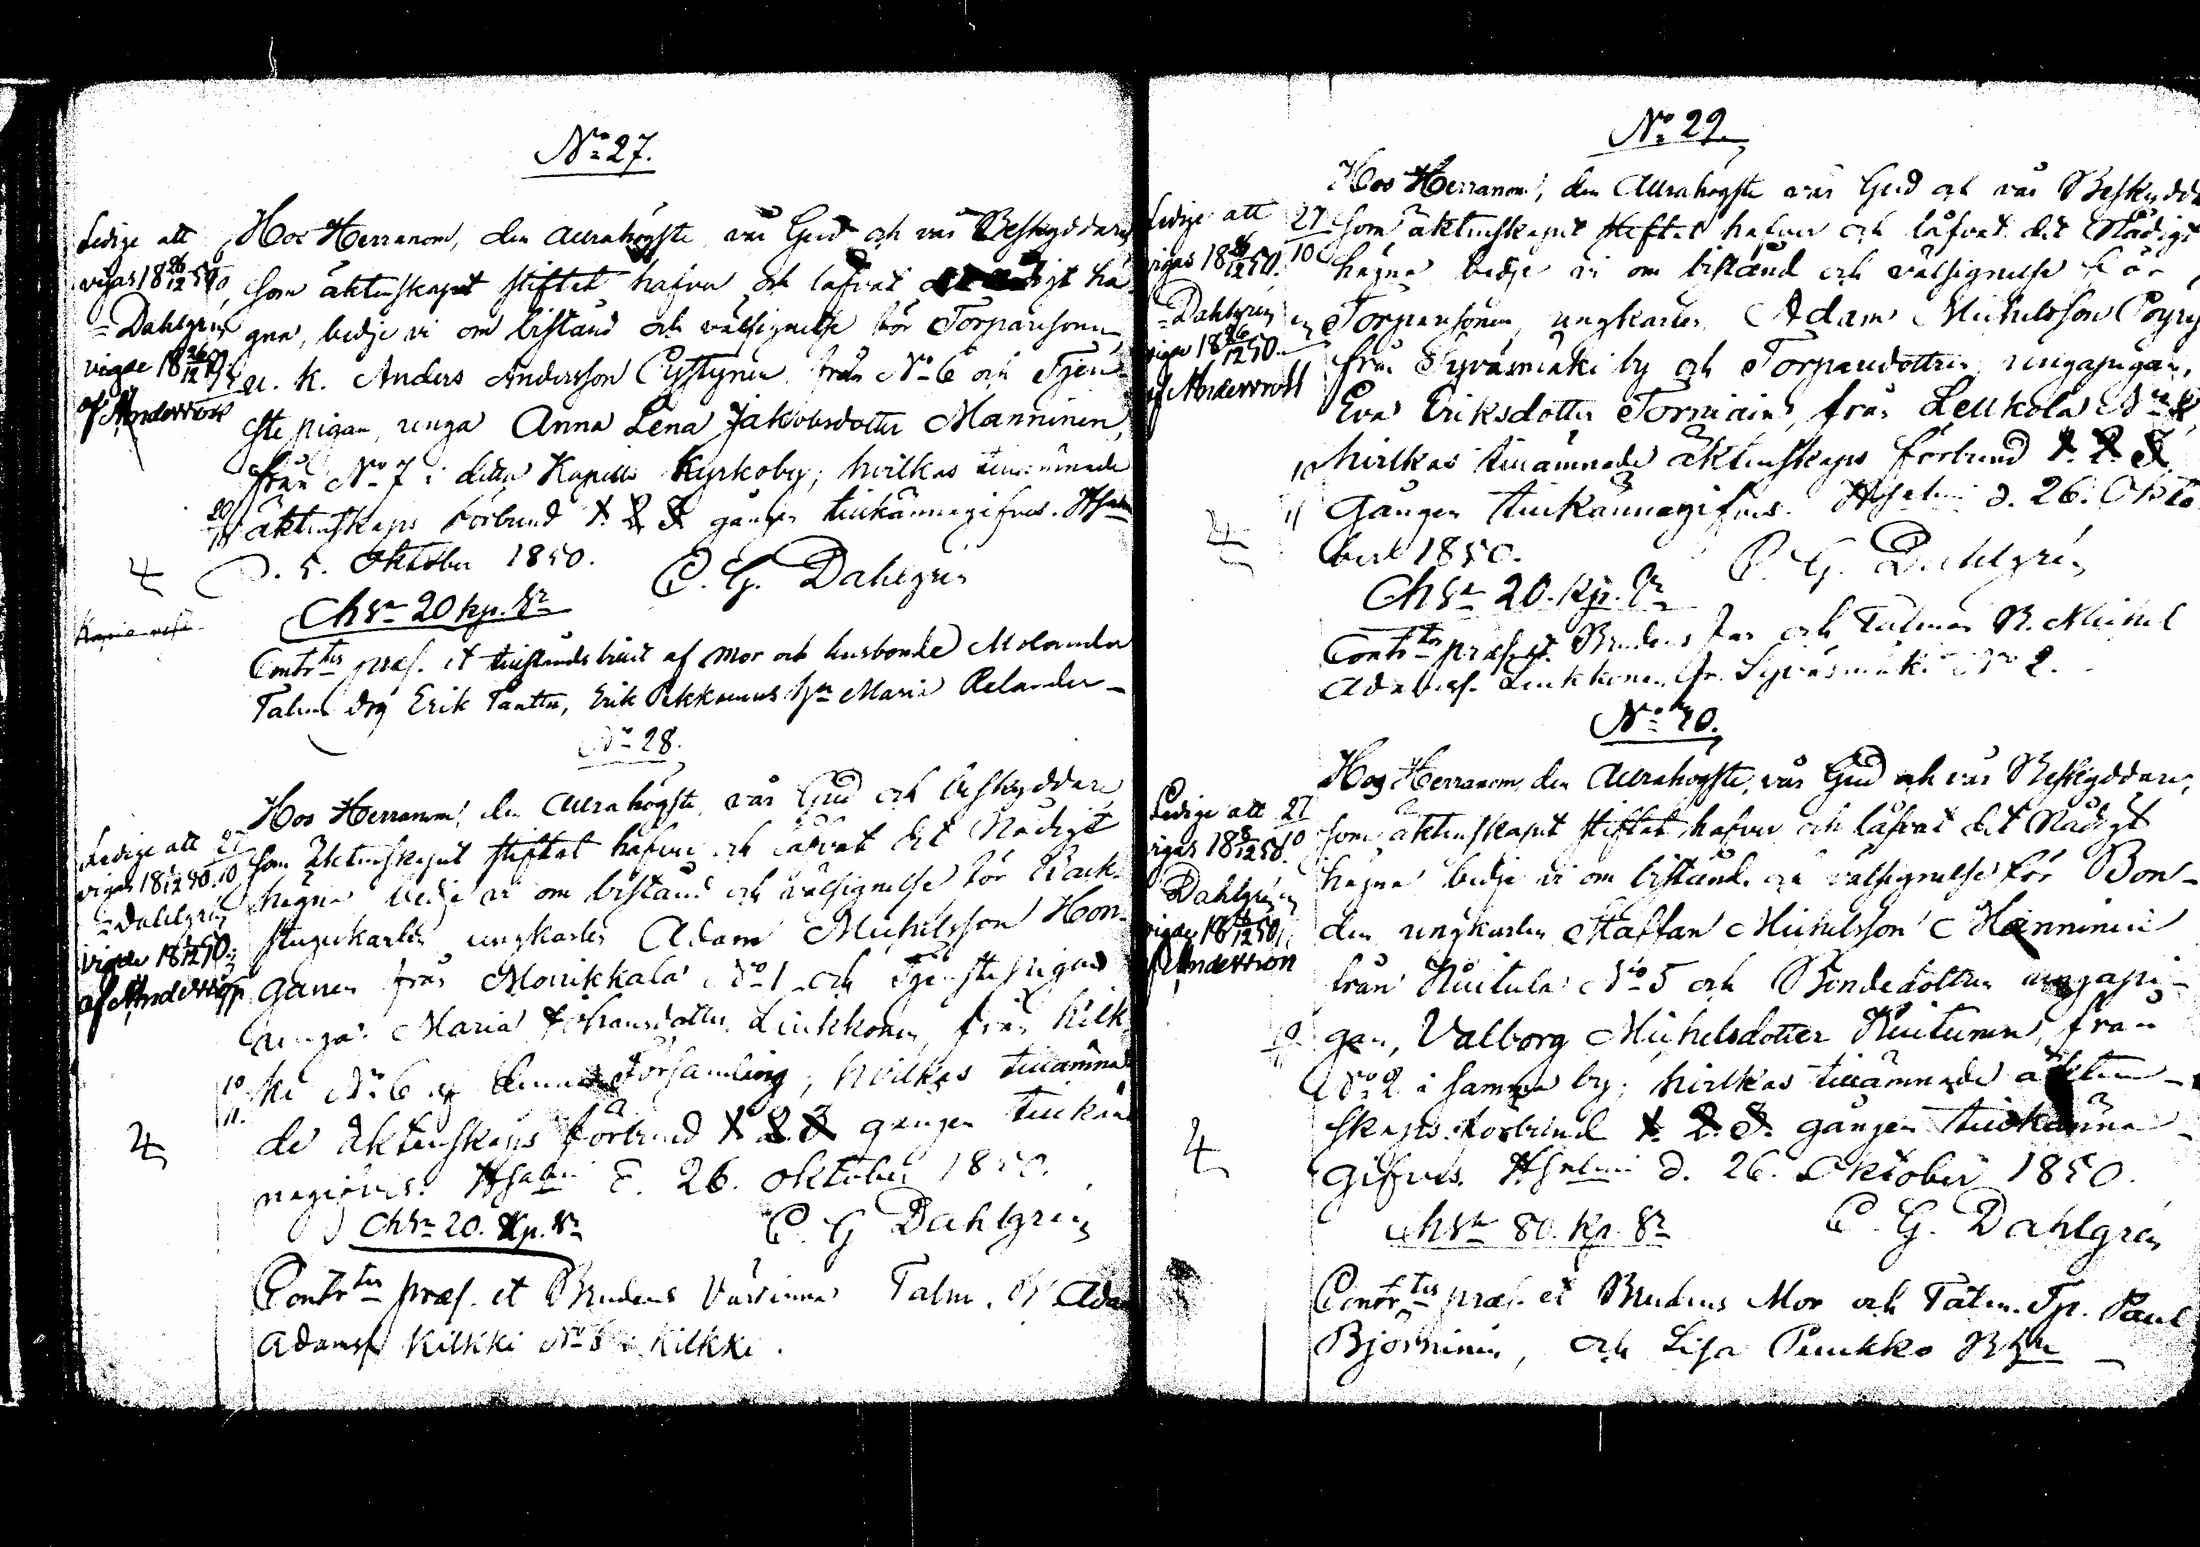 No 27.
Ledige att
vigas 18 26/12 50
Dahlgrén
vigde 18 26/12 50
af Andersson
Hos Herranom, den allrahögste vår Gud och vår Beskyddare
som äktenskapet stiftat hafver och låfvat hä-
gna, bedje vi om bistånd och välsignelse för Torparesonen
u. k. Anders Andersson Pystynen från No 6 och Tjen-
ste pigan, unga Anna Lena Jakobsdotter Manninen,
från No 7 i detta Kapells Kyrkoby; hvilkas tillämnade
äktenskaps förbund 1. 2. 3. gången tillkännagifves.
d. 5. Oktober 1850.
C. G. Dahlgrén
Ch Sr 20 kp. Sr
Contr tes præs. et tillstånds bevis af mor och husbonde Molander
Talm. Erik Tanttu, Erik Pekkanen Maria Relander
No 28.
Ledige att 27
vigas 18 /12 50. 10
Dahlgrén
vigde 18 /12 50
af Andersson
Hos Herranom, den allrahögste vår Gud och beskyddare
som äktenskapet stiftat hafver och låfvat det Nådigt
hägna bedje vi om bistånd och välsignelse för Back-
stugukarlen ungkarlen Adam Michelsson Hon-
ganen från Monikkala No 1 och Tjenstepigan
unga Maria Johansdotter Liukkonen, från Kilk-
ki No 6 af denna Församling, hvilkas tillämna-
de äktenskaps förbund 1. 2. 3. gången tillkän-
nagifves. d. 26. oktober 1850.
Ch Sr 20. Kp. Sr
C. G. Dahlgrén
Contr tes præs. et Brudens Talm. Adam
Adamsf Kilkki No 5 i Kilkki.
No 29.
Ledige att 27
vigas 18 26/12 50. 10
Dahlgrén
vigde 18 26/12 50
af Andersson
Hos Herranom, den allrahögste vår Gud och vår Beskydda
som äktenskapet stiftat hafver och låfvat det Nådigt
hägna bedje vi om bistånd och välsignelse för
Torparesonen, ungkarlen Adam Michelsson Pöyry
från Syväsmäki by och Torparedottren, ungapigan,
Eva Eriksdotter Torniain, från Leukola
hvilkas tillämnade äktenskaps förbund 1. 2. 3.
gången tillkännagifves. d. 26. Okto
ber 1850.
C. G. Dahlgrén
Ch Sr 20. Kp. Sr
Contr tes præs. et Brudens far och Talman B. Michel
Adamsf. Liukkonen fr. Syväsmäki No 2.
No 30.
Ledige att 27
vigas 18 /12 50. 10
Dahlgrén
vigde 18 /12 50
af Andersson
Hos Herranom, den allrahögste, vår Gud och vår Beskyddare,
som äktenskapet stiftat hafver och låfvat det Nådigt
hägna bedje vi om bistånd och välsignelse för Bon-
den ungkarlen Staffan Michelsson Manninen
från Huitula No 5 och Bondedottren ungapi-
gan, Valborg Michelsdotter Huitunen, från
No 2 i samma by; hvilkas tillämnade äkten-
skaps förbund 1. 2. 3. gången tillkänna-
gifves. d. 26. Oktober 1850.
Ch Sr 80. Kp. Sr
C. G. Dahlgrén
Contr tes præs. et Brudens Mor och Talm. Tp. Paul
Björninen, och Lisa Punkko